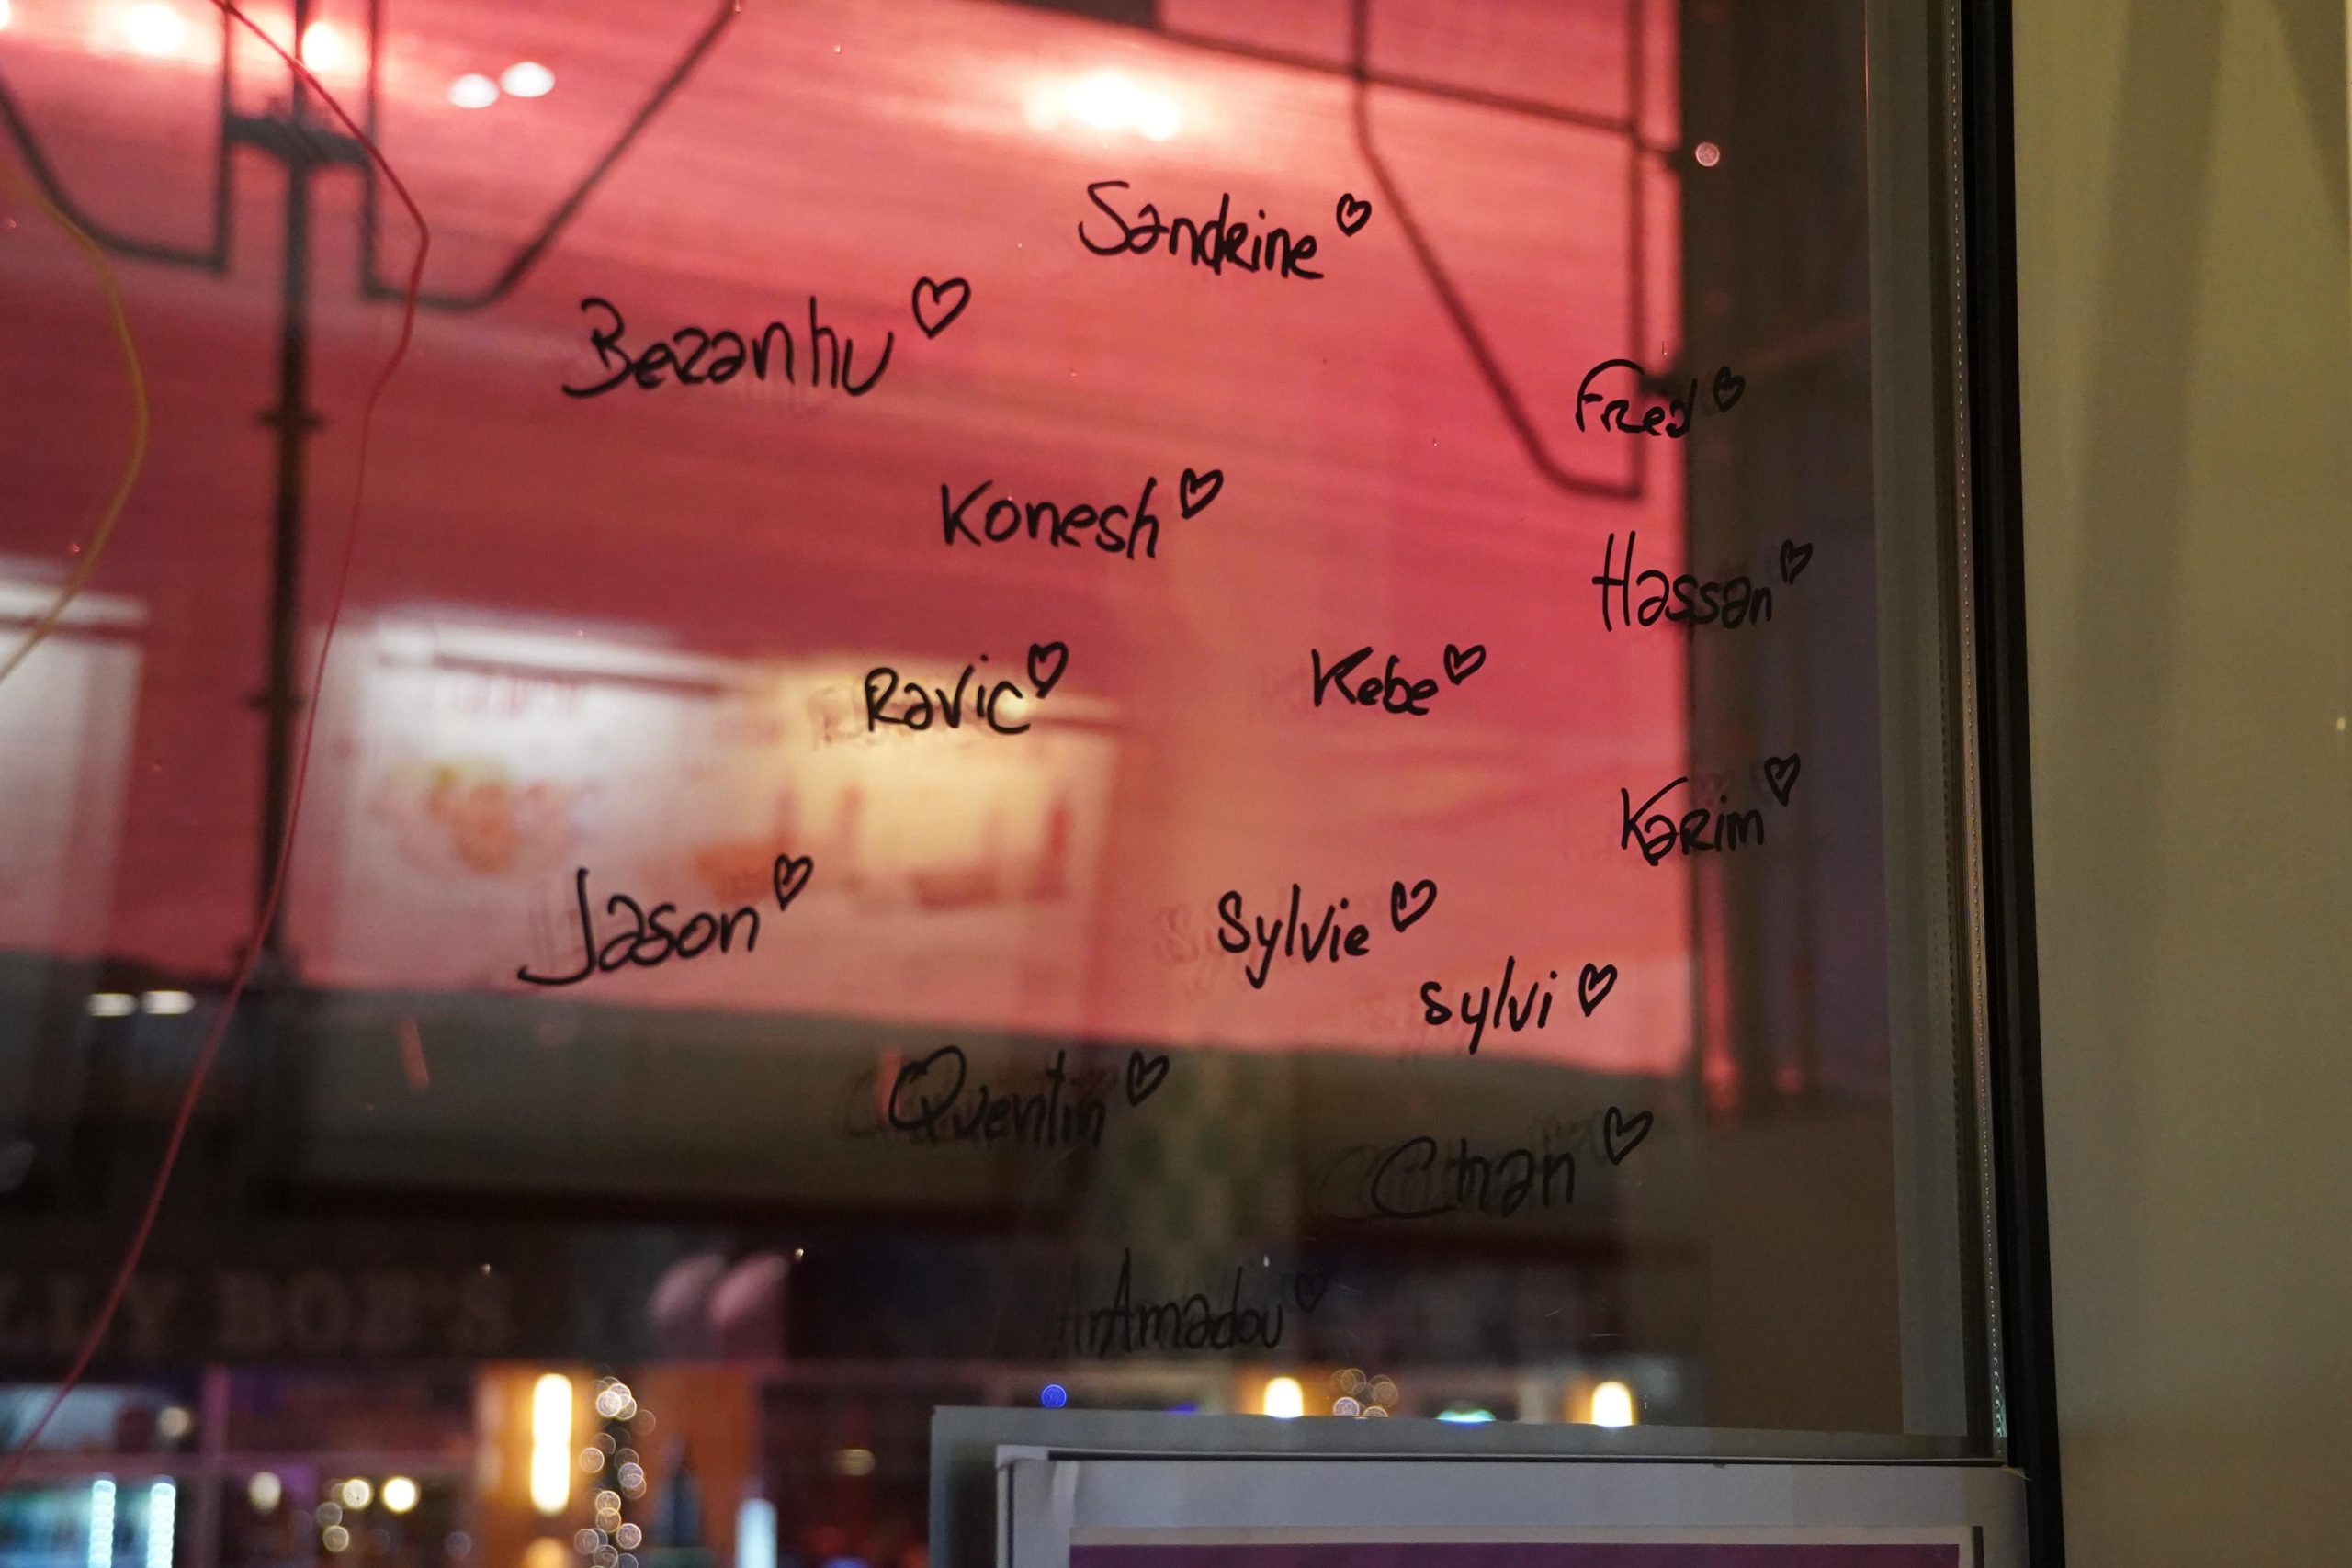 Sandrine
Bezanhu
Fred
Konesh
Hassan
Ravic
Kebe
Karim
Jason
Sylvie
Sylvi
Quentin
Chan
Amadou
BOB'S